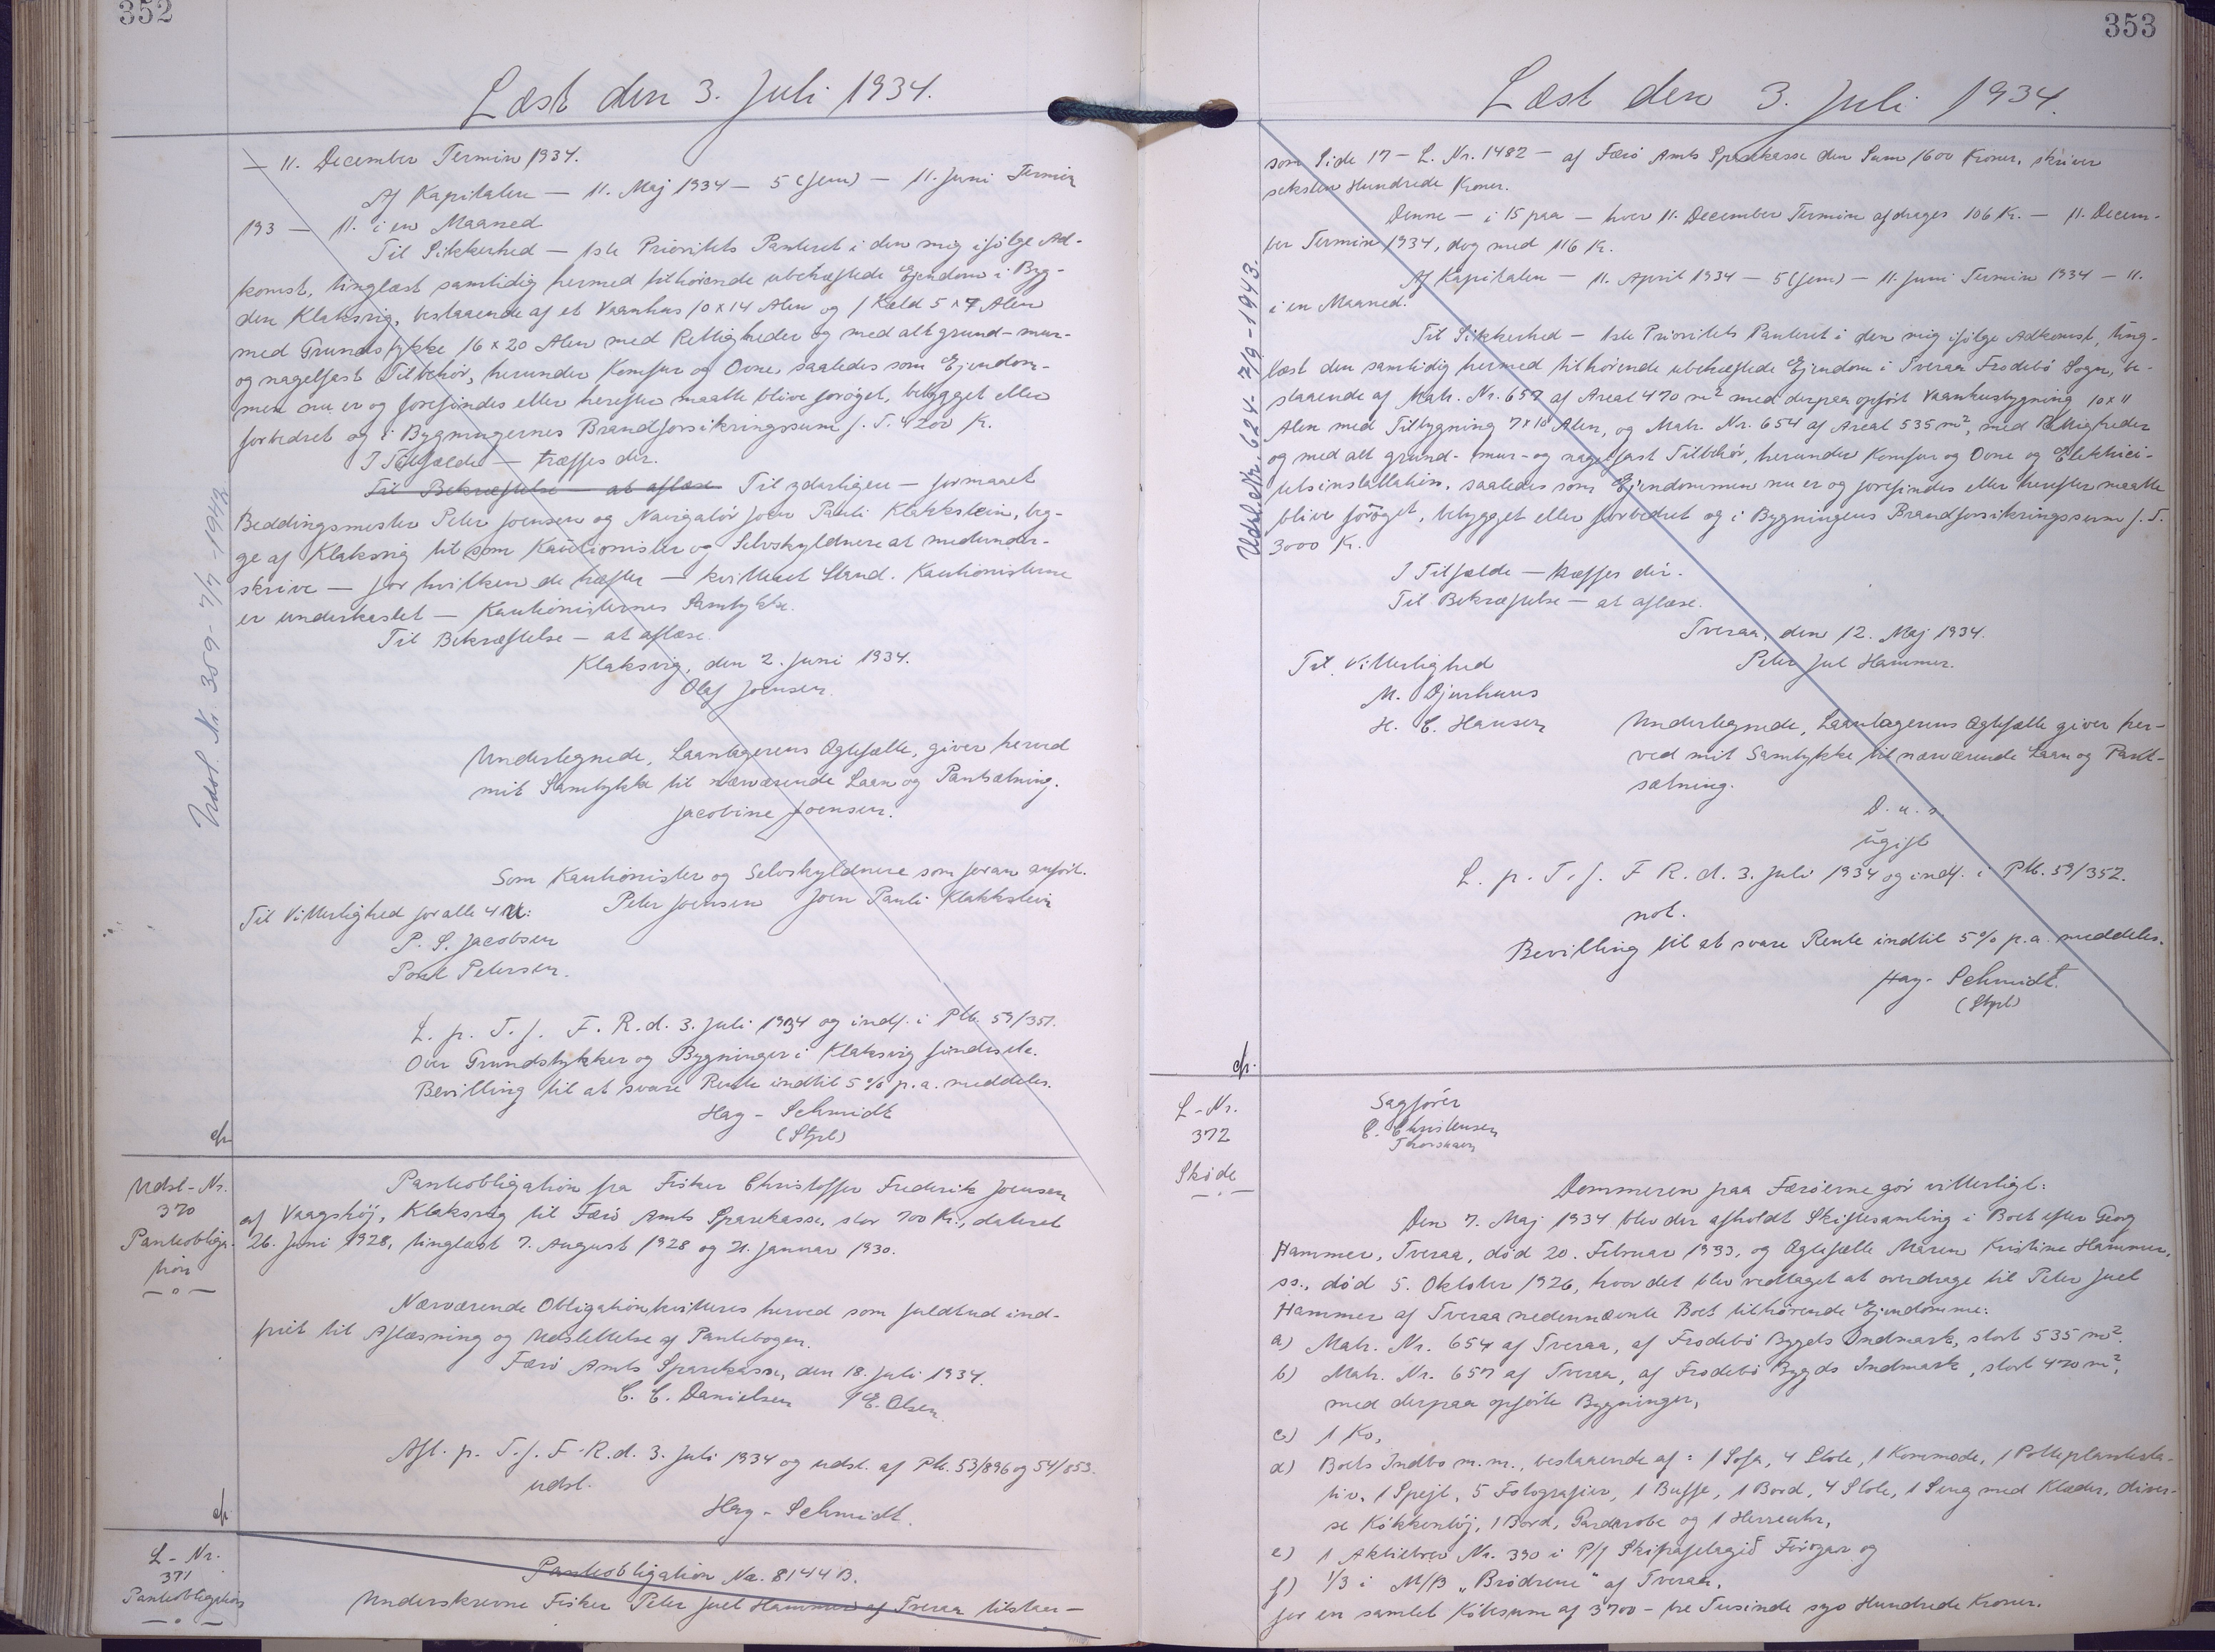 352
Læst den 3. Juli 1934.
— 11. December Termin 1934.
Af Kapitalen — 11. Maj 1934 — 5 (fem) — 11. Juni Termin
193 — 11. i en Maaned
Til Sikkerhed — 1ste Prioritets Panteret i den mig ifølge Ad-
komst, tinglæst samtidig hermed tilhørende ubehæftede Ejendom i Byg-
den Klaksvig, bestaaende af et Vaanhus 10 x 14 Alen og 1 Kæld 5 x 7 Alen
med Grundstykke 16 x 20 Alen med Rettigheder og med alt grund- mur-
og nagelfast Tilbehør, herunder Komfur og Ovne, saaledes som Ejendom-
men nu er og forefindes eller herefter maatte blive forøget, bebygget eller
forbedret og i Bygningernes Brandforsikringssum f. T. 4200 Kr.
I Tilfælde — træffes der.
Til Bekræftelse — at aflæse. Til yderligere — formaaet
Beddingsmester Peter Joensen og Navigatør Joen Pauli Klakkstein, beg-
ge af Klaksvig til som Kautionister og Selvskyldnere at medunder-
skrive — for hvilken de hæfter — kvitteret Stand. Kautionisterne
er underkastet — Kautionisternes Samtykke.
Til Bekræftelse — at aflæse.
Klaksvig, den 2. Juni 1934.
Olaf Joensen.
Undertegnede, Laantagerens Ægtefælle, giver herved
mit Samtykke til nærværende Laan og Pantsætning.
Jacobine Joensen.
Som Kautionister og Selvskyldnere som foran anført.
Peter Joensen Joen Pauli Klakkstein
Til Vitterlighed for alle 4 U:
P. S. Jacobsen
Poul Petersen.
L. p. T. f. F. R. d. 3. Juli 1934 og indf. i Ptb. 59/351.
Over Grundstykker og Bygninger i Klaksvig findes etc.
Bevilling til at svare Rente indtil 5% p.a. meddeles.
Hay-Schmidt
(Stpl)
Udsl. Nr. 389 - 7/7 - 1942
Udsl-Nr.
370
Panteobliga-
tion
— o —
Panteobligation fra Fisker Christoffer Frederik Joensen
af Vaagshöj, Klaksvig til Færø Amts Sparekasse, stor 700 Kr., dateret
26. Juni 1928, tinglæst 7. August 1928 og 21. Januar 1930.
Nærværende Obligation kvitteres herved som fuldtud ind-
friet til Aflæsning og Udslettelse af Pantebogen.
Færö Amts Sparekasse, den 18. Juli 1934.
C. C. Danielsen / E. Olsen
Afl. p. T. f. F. R. d. 3. Juli 1934 og udsl. af Ptb. 53/896 og 54/853.
udsl.
Hay-Schmidt.
L - Nr.
371
Panteobligation
— o —
Panteobligation No. 8144 B.
Underskrevne Fisker Peter Juel Hammer af Tveraa tilstaar —
353
Læst den 3. Juli 1934.
som Side 17 — L. Nr. 1482 — af Færö Amts Sparekasse den Sum 1600 Kroner, skriver
seksten Hundrede Kroner.
Denne — i 15 paa — hver 11. December Termin afdrages 106 Kr. — 11. Decem-
ber Termin 1934, dog med 116 Kr.
Af Kapitalen — 11. April 1934 — 5 (fem) — 11. Juni Termin 1934 — 11.
i en Maaned.
Til Sikkerhed — 1ste Prioritets Panteret i den mig ifølge Adkomst, ting-
læst den samtidig hermed tilhørende ubehæftede Ejendom i Tveraa Frodebø Sogn, be-
staaende af Matr. Nr. 657 af Areal 470 m² med derpaa opført Vaanhusbygning 10 x 11
Alen med Tilbygning 7 x 10 Alen, og Matr. Nr. 654 af Areal 535 m², med Rettigheder
og med alt grund- mur- og nagelfast Tilbehør, herunder Komfur og Ovne og Elektrici-
tetsinstallation, saaledes som Ejendommen nu er og forefindes eller herefter maatte
blive forøget, bebygget eller forbedret og i Bygningens Brandforsikringssum f. T.
3000 Kr.
I Tilfælde — træffes der.
Til Bekræftelse — at aflæse.
Tveraa, den 12. Maj 1934.
Peter Jul Hammer.
Til Vitterlighed
M. Djurhuus
H. C. Hansen
Undertegnede, Laantagerens Ægtefælle giver her-
ved mit Samtykke til nærværende Laan og Pant-
sætning.
D. u. s.
ugift
L. p. T. f. F R. d. 3. Juli 1934 og indf. i Ptb. 59/352.
not.
Bevilling til at svare Rente indtil 5% p.a. meddeles.
Hay-Schmidt.
(Stpl)
Udslettet. 624 - 2/9 - 1943.
L - Nr.
372
Skøde
— . —
Sagfører
C. Christensen
Thorshavn
Dommeren paa Færøerne gør vitterligt:
Den 7. Maj 1934 blev der afholdt Skiftesamling i Boet efter Georg
Hammer, Tveraa, død 20. Februar 1933, og Ægtefælle Maren Kristine Hammer,
ss., død 5. Oktober 1926, hvor det blev vedtaget at overdrage til Peter Juel
Hammer af Tveraa nedennævnte Boet tilhørende Ejendomme:
a) Matr. Nr. 654 af Tveraa, af Frodebø Bygds Indmark, stort 535 m².
b) Matr. Nr. 657 af Tveraa, af Frodebø Bygds Indmark, stort 470 m²,
med derpaa opførte Bygninger,
c) 1 Ko,
d) Boets Indbo m. m., bestaaende af: 1 Sofa, 4 Stole, 1 Kommode, 1 Potteplantesta-
tiv, 1 Spejl, 5 Fotografier, 1 Buffe, 1 Bord, 4 Stole, 1 Seng med Klæder, diver-
se Køkkentøj, 1 Bord, Garderobe og 1 Herreuhr,
e) 1 Aktiebrev Nr. 390 i P/f Skipafelagið Føroyar og
f) 1/3 i M/B "Brødrene" af Tveraa,
for en samlet Købesum af 3700 - tre Tusinde syv Hundrede Kroner.